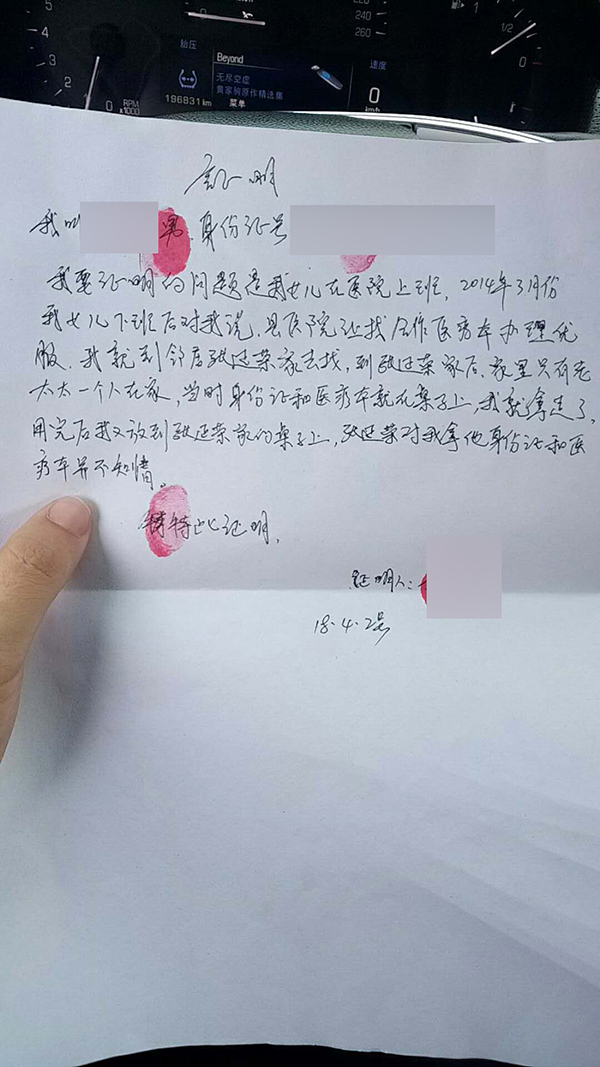 5
4
3
2
0
RPM
x1000
胎压
196931 km
Beyond
无尽空虚
黄家驹原作精选集
菜单
速度
0
km/h
220
240
260
1/2
1
0
证明
我叫 男 身份证号
我要证明的问题是我女儿在医院上班，2014年3月份
我女儿下班后对我说，县医院让找合作医疗本办理优
服，我就到邻居张廷荣家去找，到张廷荣家后，家里只有老
太太一个人在家，当时身份证和医疗本就在桌子上，我就拿走了，
用完后我又放到张廷荣家的桌子上，张廷荣对我拿他身份证和医
疗本并不知情。
特此证明，
证明人：
18.4.2号